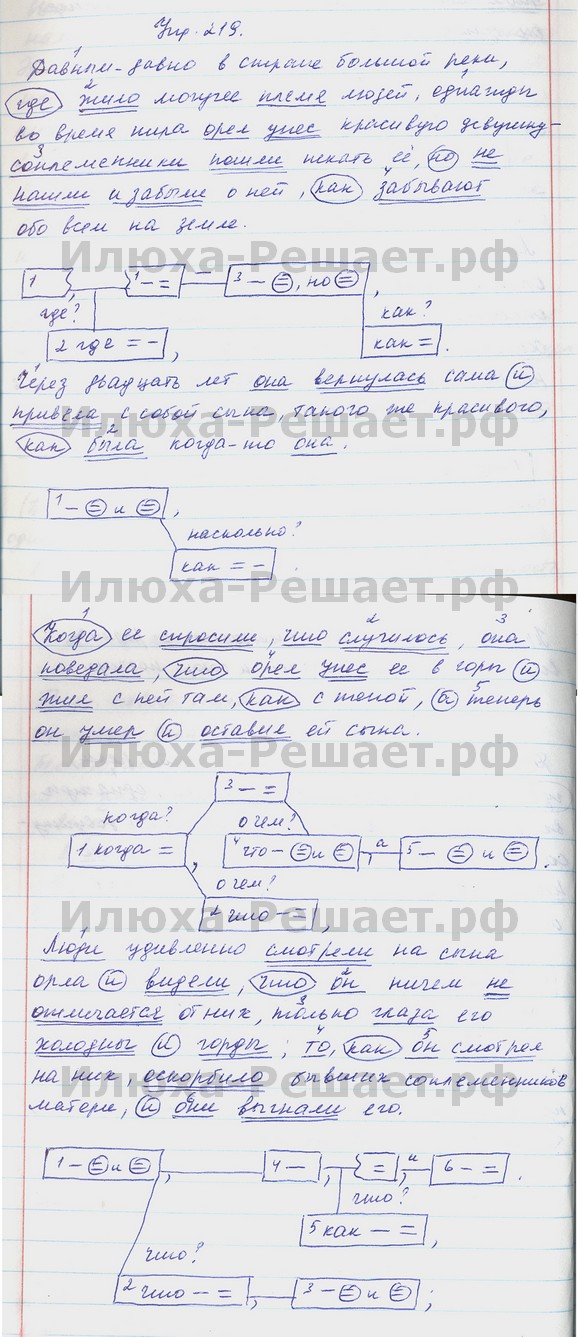 Упр. 219.
Давным-давно в стране большой реки,
где жило могучее племя людей, однажды
во время пира орел унес красивую девушку-
соплеменники пошли искать её, но не
нашли и забыли о ней, как забывают
обо всем на земле.
Илюха-Решает.рф
1 1 - = 3 - =, но =,
где? как?
2 где = -, как = .
Через двадцать лет она вернулась сама и
привела с собой сына, такого же красивого,
как была когда-то она.
1 - = и =,
насколько?
как = -
Илюха-Решает.рф
Когда ее спросили, что случилось, она
поведала, что орел унес ее в горы и
жил с ней там, как с женой, а теперь
он умер и оставил ей сына.
Илюха-Решает.рф
3 - =
когда? о чем?
1 когда =, 4 что - = и =, а 5 - = и =.
о чем?
2 что - =,
Илюха-Решает.рф
Люди удивленно смотрели на сына
орла и видели, что он ничем не
отличается от них, только глаза его
холодны и горды; то, как он смотрел
на них, оскорбило бывших соплеменников
матери, и они выгнали его.
1 - = и =, 4 -, =, и 6 - =.
что?
5 как - =,
что?
2 что - =, 3 - = и =;
Илюха-Решает.рф